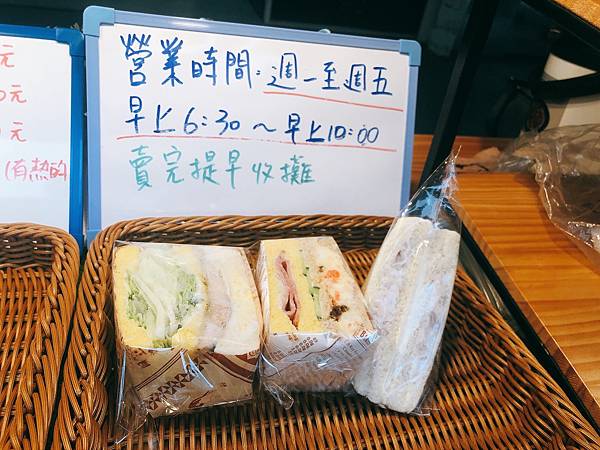 營業時間:週一至週五
早上6:30~早上10:00
賣完提早收攤
元
0元
元
(有熱的